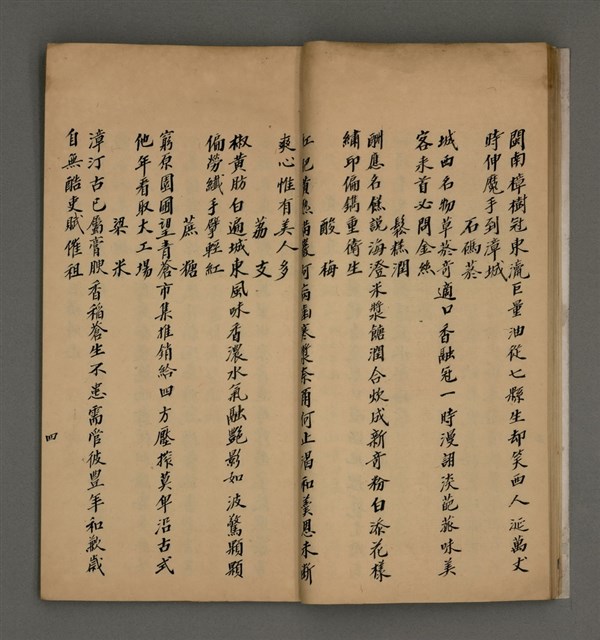 閩南樟樹冠東瀛巨量油從七縣生却笑西人延萬丈
時伸魔手到漳城
石碼菸
城西名物草菸奇適口香融冠一時漫詡淡葩菰味美
客來首必問金絲
鬆糕潤
酬應名餻說海澄米漿餹潤合炊成新奇粉白添花樣
繡印偏鐫重衛生
酸梅
紅肥黃瘦滿巖阿齒齒寒漿奈爾何止渴和羹恩未斷
爽心惟有美人多
荔支
椒黃肪白遍城東風味香濃水氣融艷影如波驚顆顆
偏勞纖手擘輕紅
蔗糖
窮原園圃望青蒼市集推銷給四方壓搾莫仍沿古式
他年看取大工場
梁米
漳汀古已屬膏腴香稻蒼生不患需官彼豐年和歉歲
自無酷吏賦催租
四